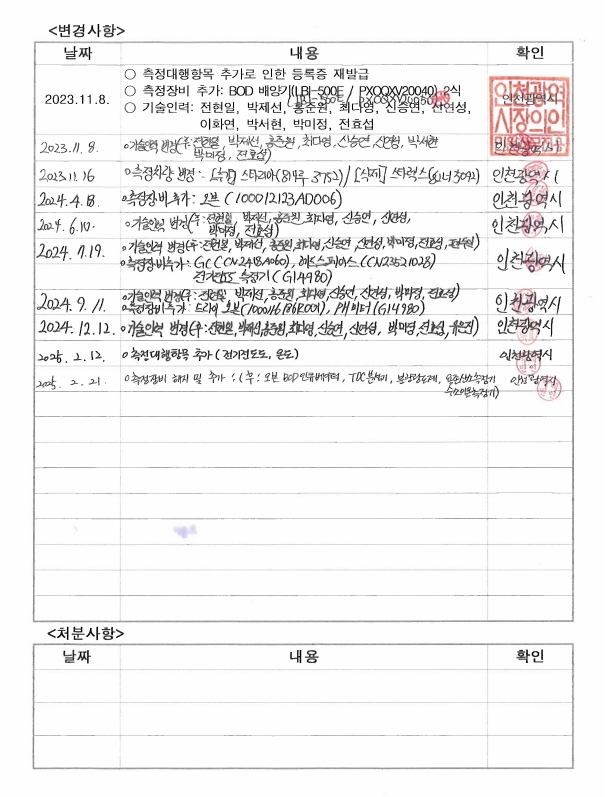 <변경사항>
날짜 내용 확인
2023.11.8. ○ 측정대행항목 추가로 인한 등록증 재발급
○ 측정장비 추가: BOD 배양기(LBI-500E / PXOQXV20040) 2식
○ 기술인력: 전현일, 박제선, 홍준원, 최다영, 신승연, 신연성,
이화연, 박서현, 박미정, 전효섭
인천광역시
인천광역
시장의인
2023.11.8. ○기술인력 변경(후: 전현일, 박제선, 홍준원, 최다영, 신승연, 신연성, 박서현
박미정, 전효섭)
2023.11.16 ○측정차량 변경: 인천광역시
2024.4.18. ○측정장비 추가: 오븐 (100012123AD006) 인천광역시
2024.6.10. ○기술인력 변경(후: 전현일, 박제선, 홍준원, 최다영, 신승연, 신연성,
박미정, 전효섭) 인천광역시
2024.7.19. ○기술인력 변경(후: 전현일, 박제선, 홍준원, 최다영, 신승연, 신연성, 박미정, 전효섭,
○측정장비추가: GC(CN2418A060), 헤드스페이스(CN23521028)
측정기(G14980) 인천광역시
2024.9.11. ○기술인력 변경(후: 전현일, 박제선, 홍준원, 최다영, 신승연, 신연성, 박미정, 전효섭)
○측정장비추가: 드라이 오븐 pH미터(G14980) 인천광역시
2024.12.12. ○기술인력 변경(후: 전현일, 박제선, 홍준원, 최다영, 신승연, 신연성, 박미정, 전효섭, 인천광역시
2025.2.12. ○측정대행항목 추가 (전기전도도, 온도) 인천광역시
2025.2.21. ○측정장비 해지 및 추가: (후: 오븐, TOC분석기, 용존산소측정기
수소이온측정기) 인천광역시
<처분사항>
날짜 내용 확인